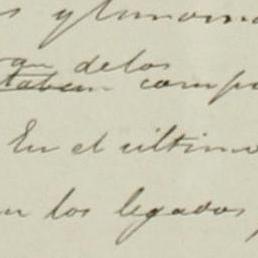 s y
an de los
taban comp
En el ultimo
en los legados